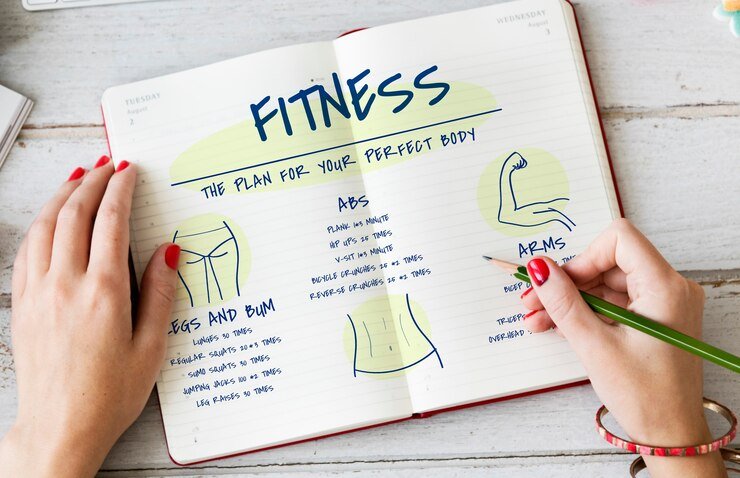 TUESDAY
August
2
WEDNESDAY
August
3
FITNESS
THE PLAN FOR YOUR PERFECT BODY
LEGS AND BUM
LUNGES 30 TIMES
REGULAR SQUATS 20*3 TIMES
SUMO SQUATS 30 TIMES
JUMPING JACKS 100 *2 TIMES
LEG RAISES 30 TIMES
ABS
PLANK 1*3 MINUTE
HIP UPS 25 TIMES
V-SIT 1*3 MINUTE
BICYCLE CRUNCHES 25 *2 TIMES
REVERSE CRUNCHES 25 *2 TIMES
ARMS
TRICEPS
OVERHEAD